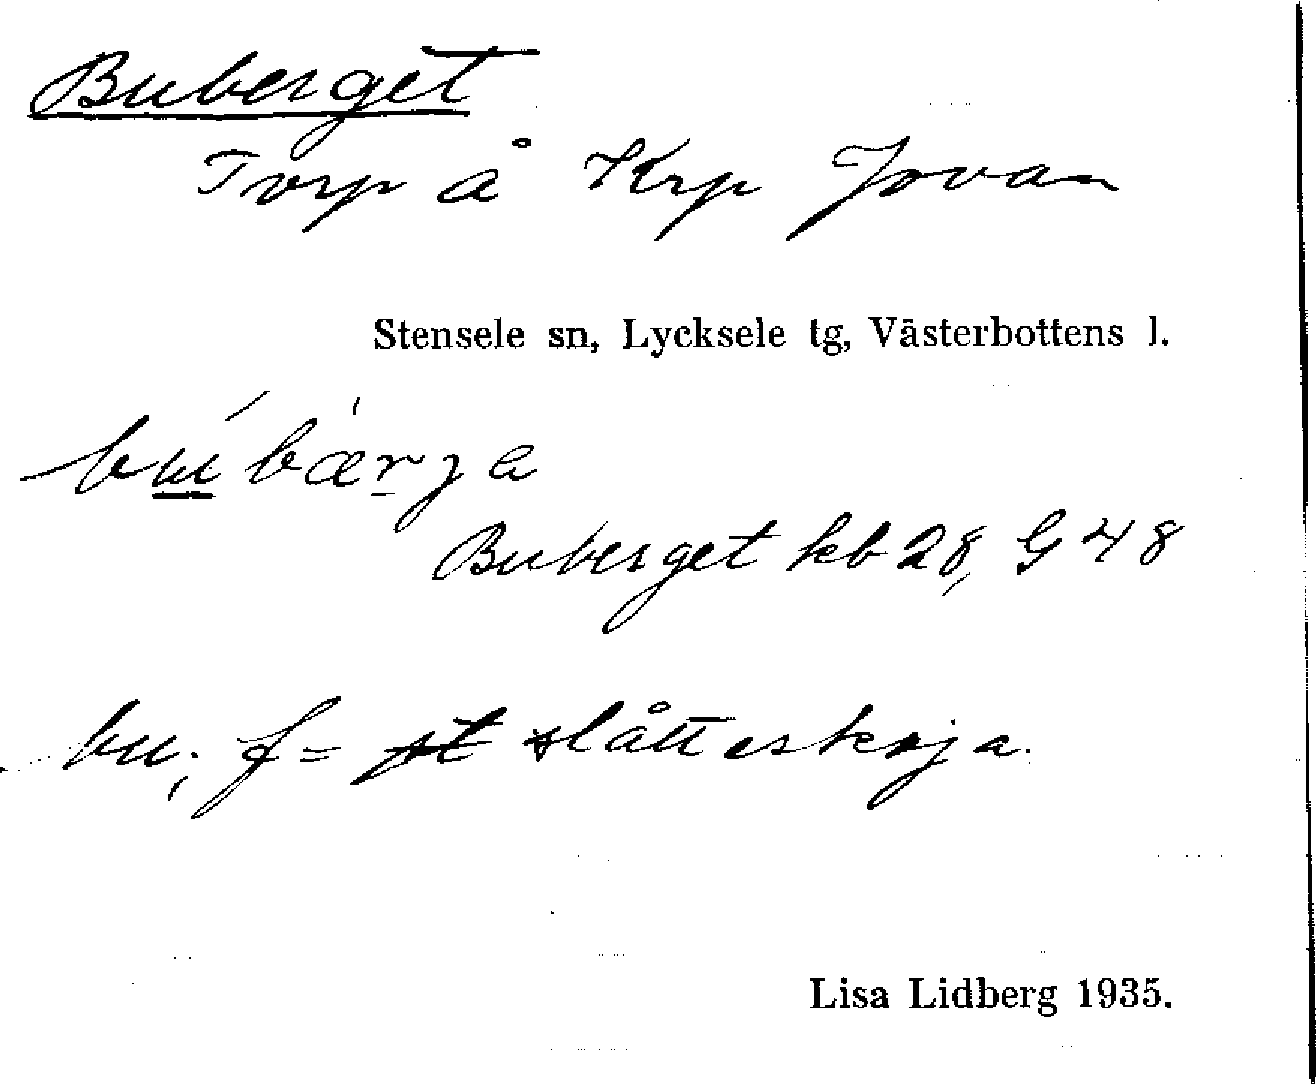 Buberget
Torp å Krp Jovan
Stensele sn, Lycksele tg, Västerbottens l.
búbæ̀rja
Buberget kb 28, G 48
bu, f = slåtteskoja.
Lisa Lidberg 1935.